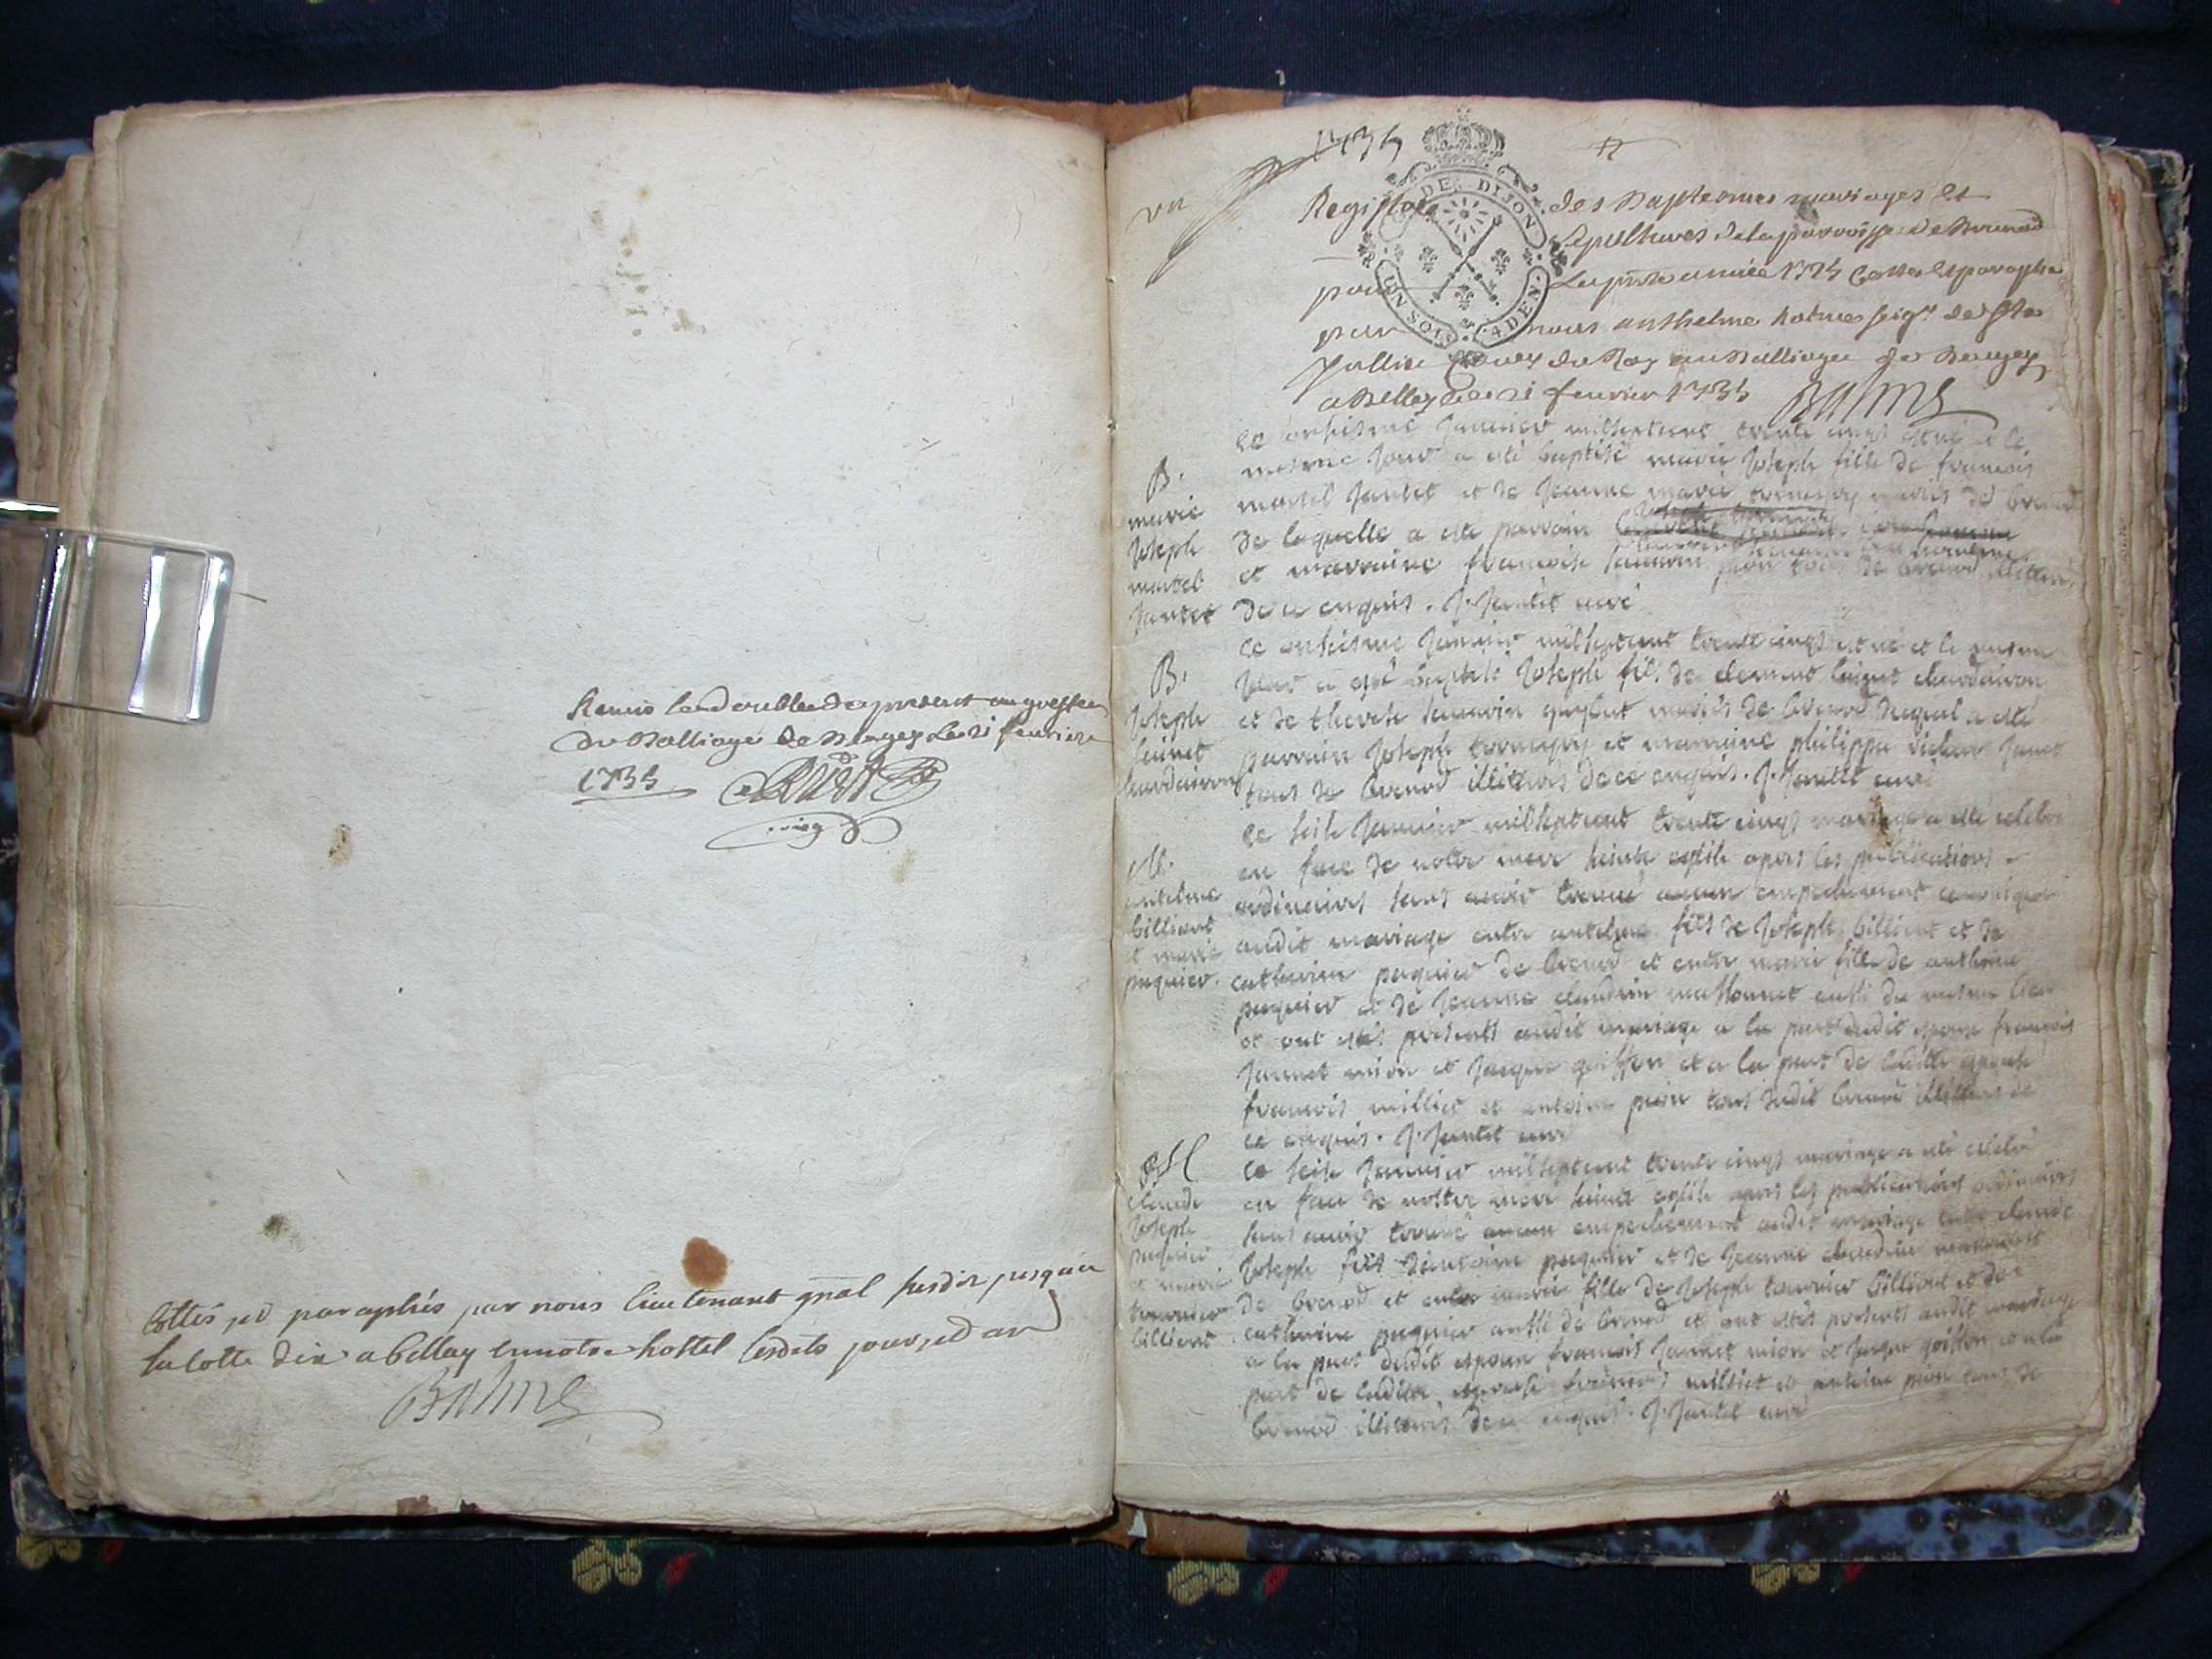 Remis le double du present au greffe
du Balliage de Bugey le 21 feurier
1735
Cottés et paraphés par nous lieutenant gnal susdit jusqua
la cotte dix a bellay en notre hostel lesdits jour et an
Balme
1735
Registre des Baptesmes mariages et
sepultures de la parroisse de Brenod
pour la pnte année 1735 Cottes et paraphe
par nous anthelme balme seigr de Ste
Jullie du Roy au Balliage de Bugey
a Belley ce 21 feurier 1735 Balme
B.
marie
Joseph
martel
Jantet
ce onhiesme Januier milseptcent trente cinq est né et le
mesme Jour a esté baptisé marie Joseph fille de francois
martel Jantet et de Jeanne marie mariés de brenod
de laquelle a esté parrain
et marraine francoise tous de brenod
de ce enquis . J. Jantet curé
B.
Joseph
ce onhiesme Januier milseptcent trente cinq est né et le mesme
Jour a esté baptisé Joseph fils de clement
et de therese mariés de brenod duquel a esté
parrain Joseph et marraine philippa
tous de brenod illiterés de ce enquis . J. Jantet curé
M.
antelme
billiont
et marie
puquier .
ce seise Januier milseptcent trente cinq mariage a esté celebré
en face de notre mere sainte eglise apres les publications
ordinaires sans auoir trouué aucun empechement canonique
audit mariage entre antelme fils de Joseph billiont et de
catherine puquier de brenod et entre marie fille de anthoine
puquier et de Jeanne claudine aussi du mesme lieu
et ont estés presents audit mariage a la part dudit espoux francois
Jannet mion et Jacque goiffon et a la part de ladite epouse
francois milliet et antoine pion tous dudit brenod illiterés de
ce enquis . J. Jantet curé
M
claude
Joseph
puquier
et marie
tournier
billiont
ce seise Januier milseptcent trente cinq mariage a esté celebré
en face de nostre mere sainte eglise apres les publications ordinaires
sans auoir trouué aucun empechement audit mariage entre claude
Joseph fils dantoine puquier et de Jeanne claudine
de brenod et entre marie fille de Joseph tournier billiont et de
catherine puquier aussi de brenod et ont estés presents audit mariage
a la part dudit espoux francois Jannet mion et Jacque goiffon et a la
part de ladite espouse francois milliet et antoine pion tous de
brenod illiterés de ce enquis . J. Jantet curé